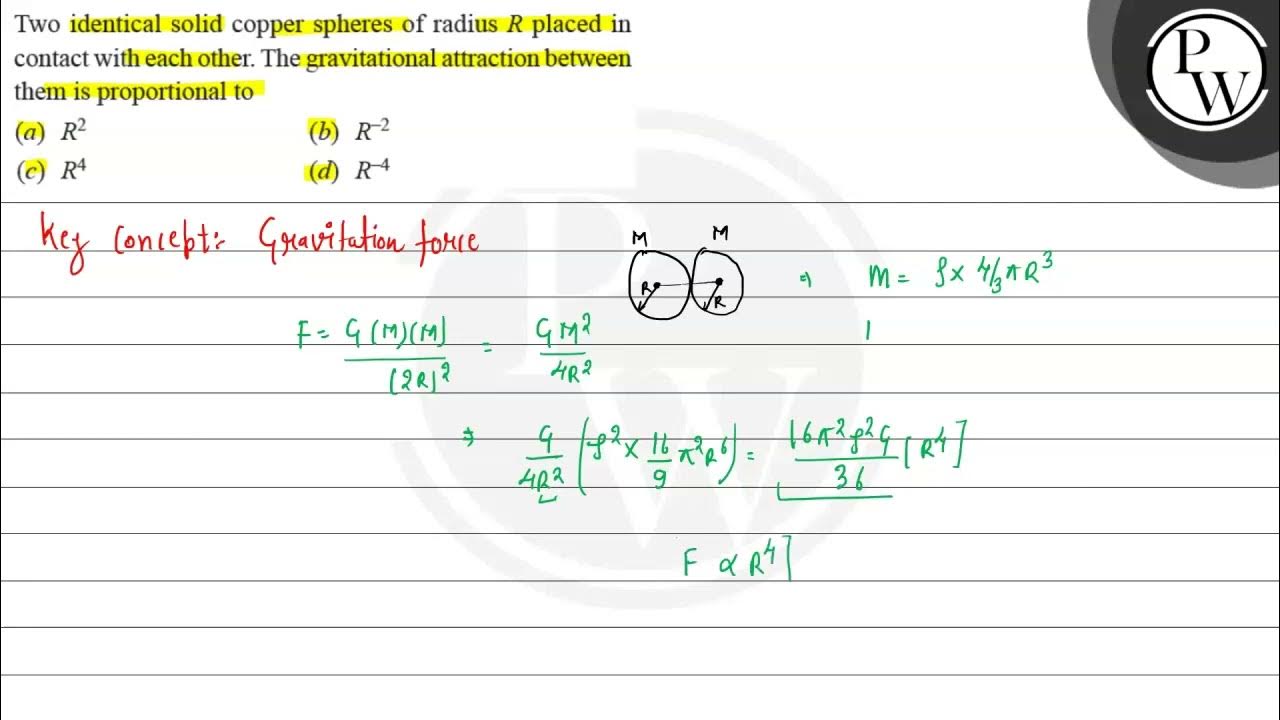 Two identical solid copper spheres of radius R placed in
contact with each other. The gravitational attraction between
them is proportional to
(a) R² (b) R⁻²
(c) R⁴ (d) R⁻⁴
PW
Key Concept:- Gravitation force
M M
R R
⇒ M = ρ × 4/3 πR³
F = G(M)(M)/(2R)² = GM²/4R²
⇒ G/4R² (ρ² × 16/9 π²R⁶) = 16π²ρ²G/36 [R⁴]
F ∝ R⁴]